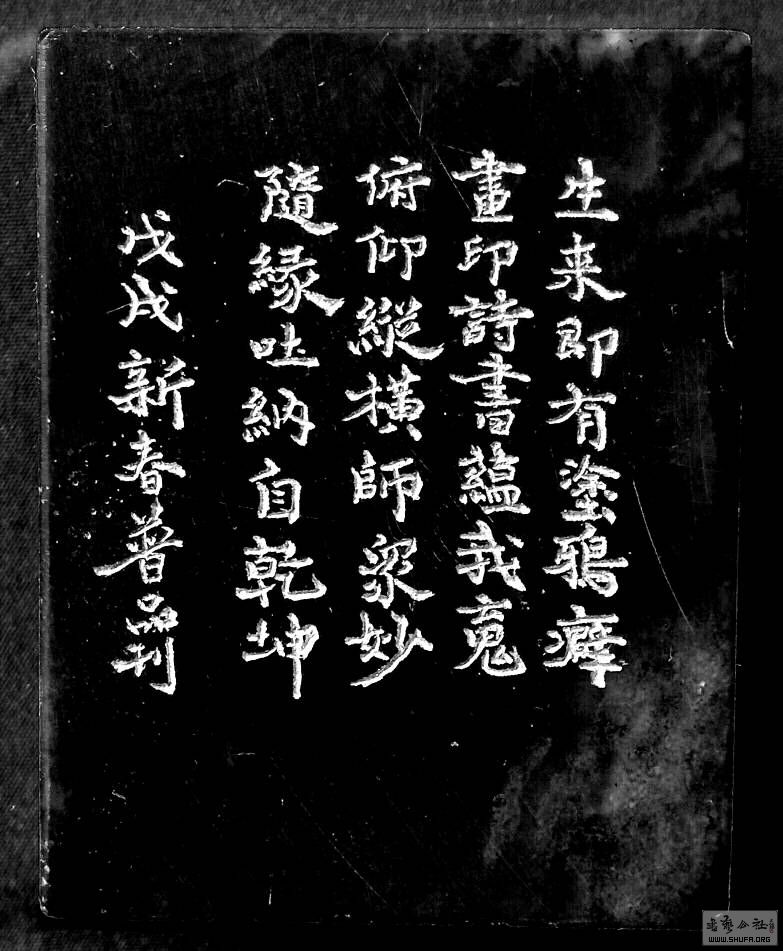 生来即有塗鴉癖
畫印詩書蘊我䰟
俯仰縱橫師眾妙
隨緣吐納自乾坤
戊戌新春普品刊
WWW.SHUFA.ORG